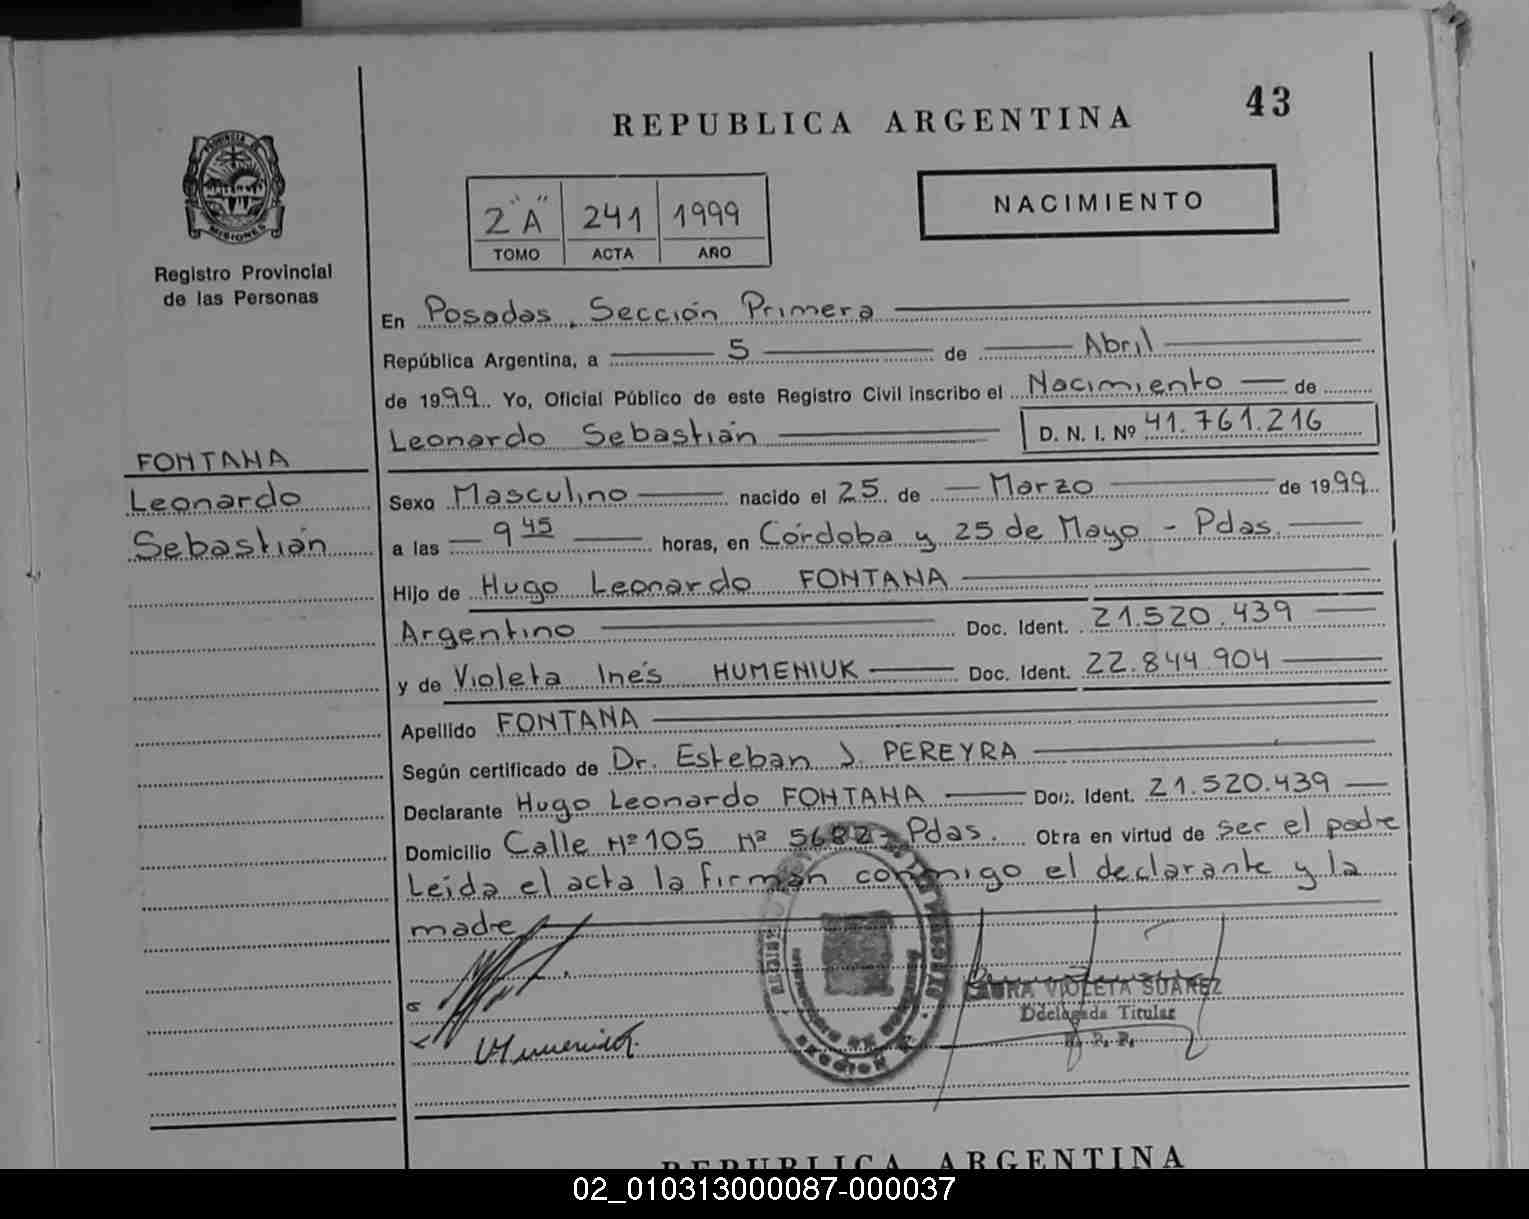 43
REPUBLICA ARGENTINA
PROVINCIA DE
MISIONES
Registro Provincial
de las Personas
2 "A" 241 1999
TOMO ACTA AÑO
NACIMIENTO
En Posadas, Sección Primera
República Argentina, a 5 de Abril
de 1999. Yo, Oficial Público de este Registro Civil inscribo el Nacimiento de
Leonardo Sebastián D. N. I. Nº 41.761.216
FONTANA
Leonardo
Sebastián
Sexo Masculino nacido el 25 de Marzo de 1999
a las 9 45 horas, en Córdoba y 25 de Mayo - Pdas.
Hijo de Hugo Leonardo FONTANA
Argentino Doc. Ident. 21.520.439
y de Violeta Inés HUMENIUK Doc. Ident. 22.844.904
Apellido FONTANA
Según certificado de Dr. Esteban J. PEREYRA
Declarante Hugo Leonardo FONTANA Doc. Ident. 21.520.439
Domicilio Calle Nº 105 Nº 5682- Pdas. Obra en virtud de ser el padre
Leída el acta la firman conmigo el declarante y la
madre
LAURA VIOLETA SUAREZ
Delegada Titular
R. P. P.
REPUBLICA ARGENTINA
02_010313000087-000037